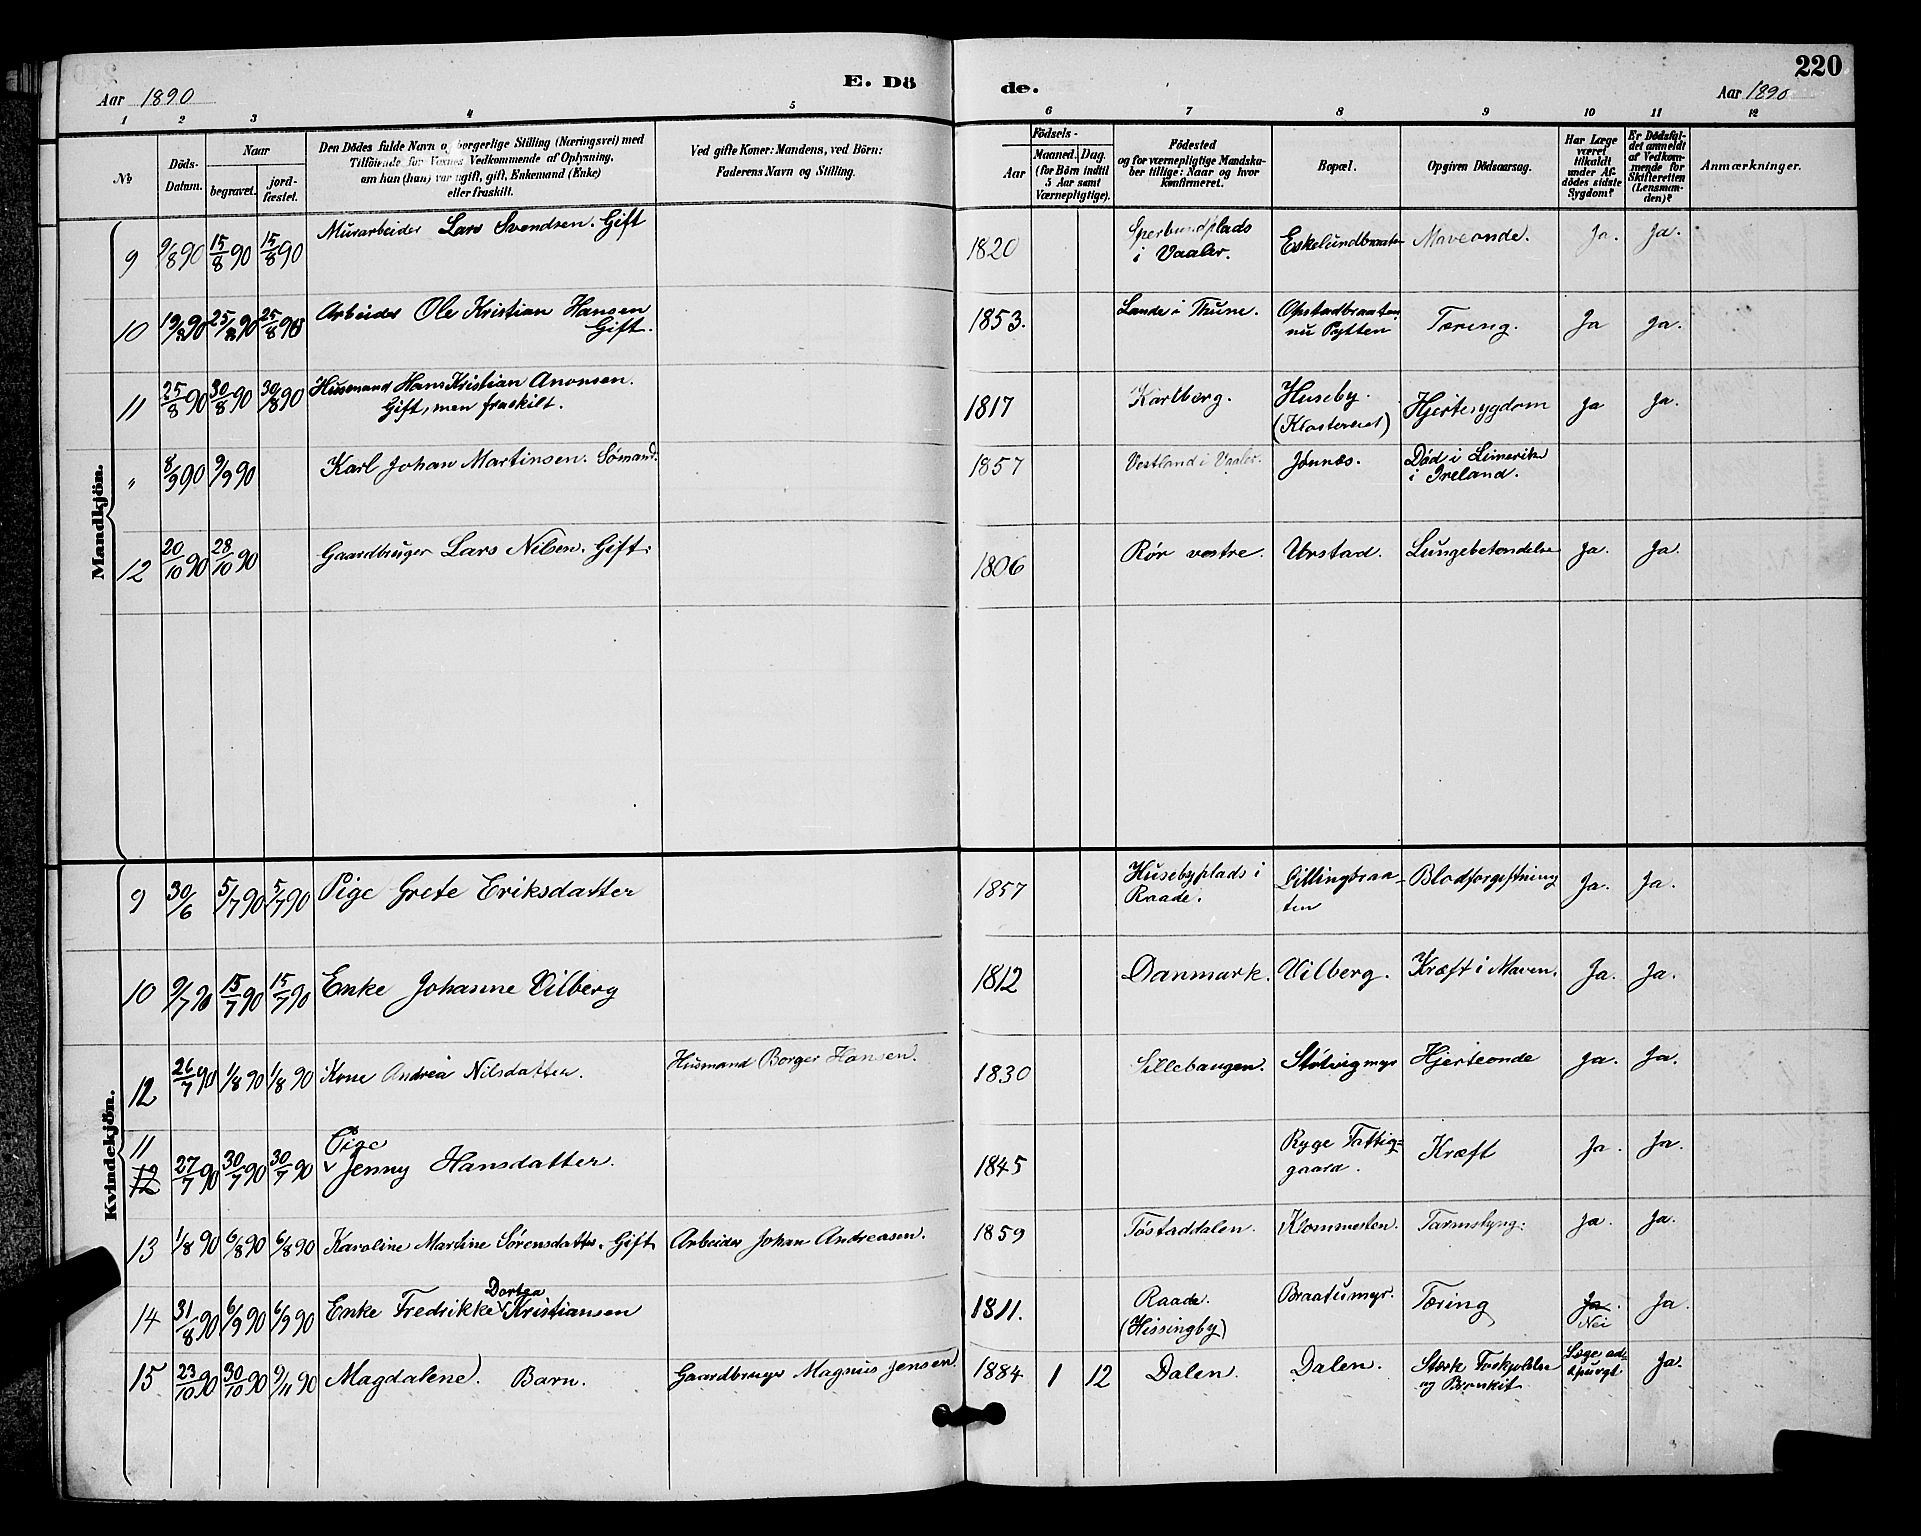 Aar 1890 E. Dö de. Aar 1890 220
1 2 3 4 5 6 7 8 9 10 11 12
№ Döds-Datum. Naar begravet. jordfæstet. Den Dödes fulde Navn og borgerlige Stilling (Næringsvei) med Tilföiende for Voxnes Vedkommende af Oplysning, om han (hun) var ugift, gift, Enkemand (Enke) eller fraskilt. Ved gifte Koner: Mandens, ved Börn: Faderens Navn og Stilling. Födsels- Aar Maaned. Dag. (for Börn indtil 5 Aar samt Værnepligtige). Födested og for værnepligtige Mandskaber tillige: Naar og hvor konfirmeret. Bopæl. Opgiven Dödsaarsag. Har Læge været tilkaldt under Afdödes sidste Sygdom? Er Dödsfaldet anmeldt af Vedkommende for Skifteretten (Lensmanden)? Anmærkninger.
Mandkjön.
9 9/8 90 15/8 90 15/8 90 Murarbeider Lars Svendsen. Gift 1820 Sperbundplads i Vaaler. Eskelundbraaten Maveonde. Ja. Ja.
10 19/8 90 25/8 90 25/8 90 Arbeider Ole Kristian Hansen Gift. 1853. Lande i Thune. Opstadbraaten nu Pytten Tæring. Ja Ja.
11 25/8 90 30/8 90 30/8 90 Husmand Hans Kristian Anonsen. Gift, men fraskilt. 1817 Karlborg. Huseby. (Klostereiet) Hjertesygdom Ja Ja.
" 8/9 90 9/9 90 Karl Johan Martinsen. Sømand. 1857 Vestland i Vaaler. Jonnæs. Død i Limerik i Ireland.
12 20/10 90 28/10 90 Gaardbruger Lars Nilsen. Gift. 1806 Rør vestre. Urstad. Lungebetændelse Ja. Ja.
Kvindekjön.
9 30/6 5/7 90 5/7 90 Pige Grete Eriksdatter 1857 Husebyplads i Raade. Lillingbraa-ten Blodforgiftning Ja. Ja.
10 9/7 90 15/7 90 15/7 90 Enke Johanne Vilberg 1812 Danmark. Vilberg. Kræft i Maven. Ja. Ja.
12 26/7 90 1/8 90 1/8 90 Kone Andrea Nilsdatter. Husmand Borger Hansen. 1830 Sillebaugen. Støtvigmyr Hjerteonde Ja. Ja.
11 12 27/7 90 30/7 90 30/7 90 Pige Jenny Hansdatter. 1845 Rygge Fattig=gaard. Kræft Ja. Ja.
13 1/8 90 6/8 90 6/8 90 Karoline Martine Sørensdatter. Gift Arbeider Johan Andreasen. 1859 Tøstaddalen. Klommesten. Tarmslyng: Ja. Ja.
14 31/8 90 6/9 90 6/9 90 Enke Fredrikke Dortea Kristiansen 1811. Raade. (Hissingby) Braatumyr. Tæring Ja. Nei Ja.
15 23/10 90 30/10 90 9/11 90 Magdalene. Barn. Gaardbruger Magnus Jensen 1884 1 12 Dalen. Dalen. Sterk Forkjølelse og Bronkit Læge ad=spurgt Ja.